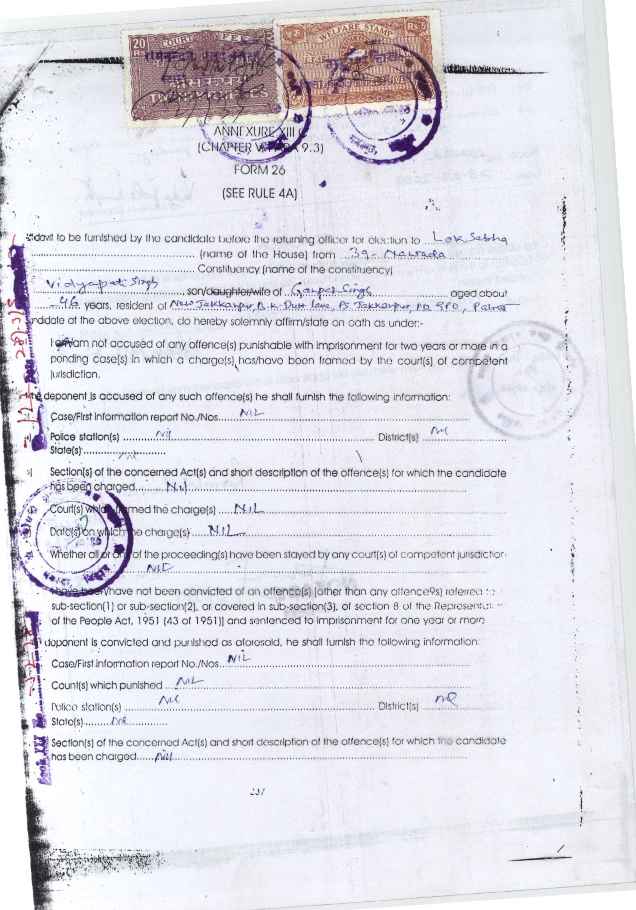 20
COURT FEE
WELFARE STAMP
RS 5
ANNEXURE XIII
(CHAPTER V, PARA 9.3)
FORM 26
(SEE RULE 4A)
davit to be furnished by the candidate before the returning officer for election to Lok Sabha
(name of the House) from 39- Nawada
Constituency (name of the constituency)
Vidyapati Singh son/daughter/wife of Ganpat Singh aged about
46 years, resident of New Jakkanpur, B.K. Dutt lane, PS Jakkanpur, PO GPO, Patna
ndidate at the above election, do hereby solemnly affirm/state on oath as under:-
I am/am not accused of any offence(s) punishable with imprisonment for two years or more in a
pending case(s) in which a charge(s) has/have been framed by the court(s) of competent
jurisdiction.
deponent is accused of any such offence(s) he shall furnish the following information:
Case/First information report No./Nos. NIL
Police station(s) Nil District(s) Nil
State(s)
Section(s) of the concerned Act(s) and short description of the offence(s) for which the candidate
has been charged Nil
Court(s) which framed the charge(s) NIL
Date(s) on which the charge(s) NIL
Whether all or any of the proceeding(s) have been stayed by any court(s) of competent jurisdiction
NIL
have been/have not been convicted of an offence(s) [other than any offence9s) referred to
sub-section(1) or sub-section(2), or covered in sub-section(3), of section 8 of the Representat
of the People Act, 1951 (43 of 1951)] and sentenced to imprisonment for one year or more
deponent is convicted and punished as aforesaid, he shall furnish the following information:
Case/First information report No./Nos. NIL
Count(s) which punished NIL
Police station(s) Nil District(s) Nil
State(s) Nil
Section(s) of the concerned Act(s) and short description of the offence(s) for which the candidate
has been charged Nill